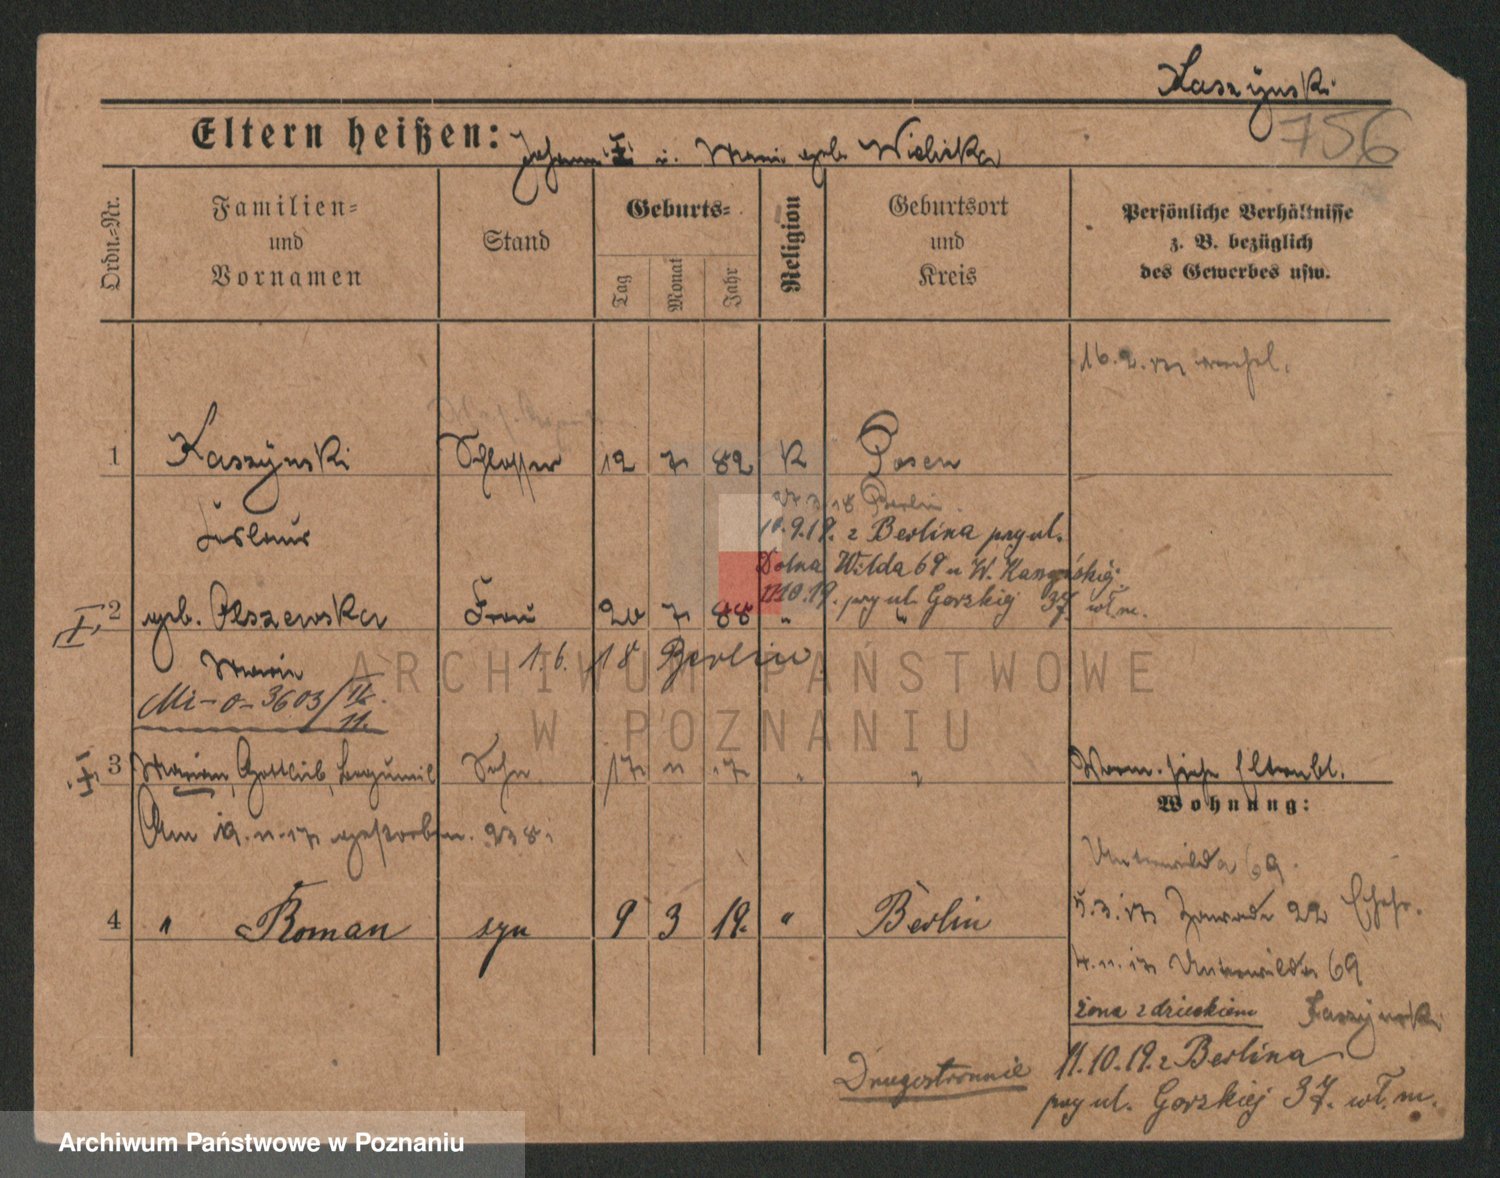 Kaszÿnski
756
Eltern heißen: Johann u. Marie geb. Wielicka
Ordn.=Nr.
Familien=
und
Vornamen
Stand
Geburts=
Tag
Monat
Jahr
Religion
Geburtsort
und
Kreis
Persönliche Verhältnisse
z. B. bezüglich
des Gewerbes usw.
16.2.17
1 Kaszÿnski Schlosser 12 7 82 K Posen
27 3 18 Berlin
10.9.19. z Berlina przy ul.
Dolna Wilda 69 u W. Kaszyńskiej
11 10.19. przy ul. Gorskiej 37. wł. m.
2 geb. Olszewska Frau 20 7 88 " "
Marie
1.6.18 Berlin
Mi-0-3603/II
11.
3 Marian, Gottlieb, Bogumil Sohn 17 11 17 " "
Am 19.11.17 gestorben. 238.
4 " Roman syn 9 3 19. " Berlin
Wohnung:
Unterwilda 69.
5.3.17 22
4.11.17 Unterwilda 69
żona z dzieckiem Kaszÿnski
Drugostronnie
11.10.19. z Berlina
przy ul. Gorskiej 37. wł. m.
ARCHIWUM PAŃSTWOWE
W POZNANIU
Archiwum Państwowe w Poznaniu